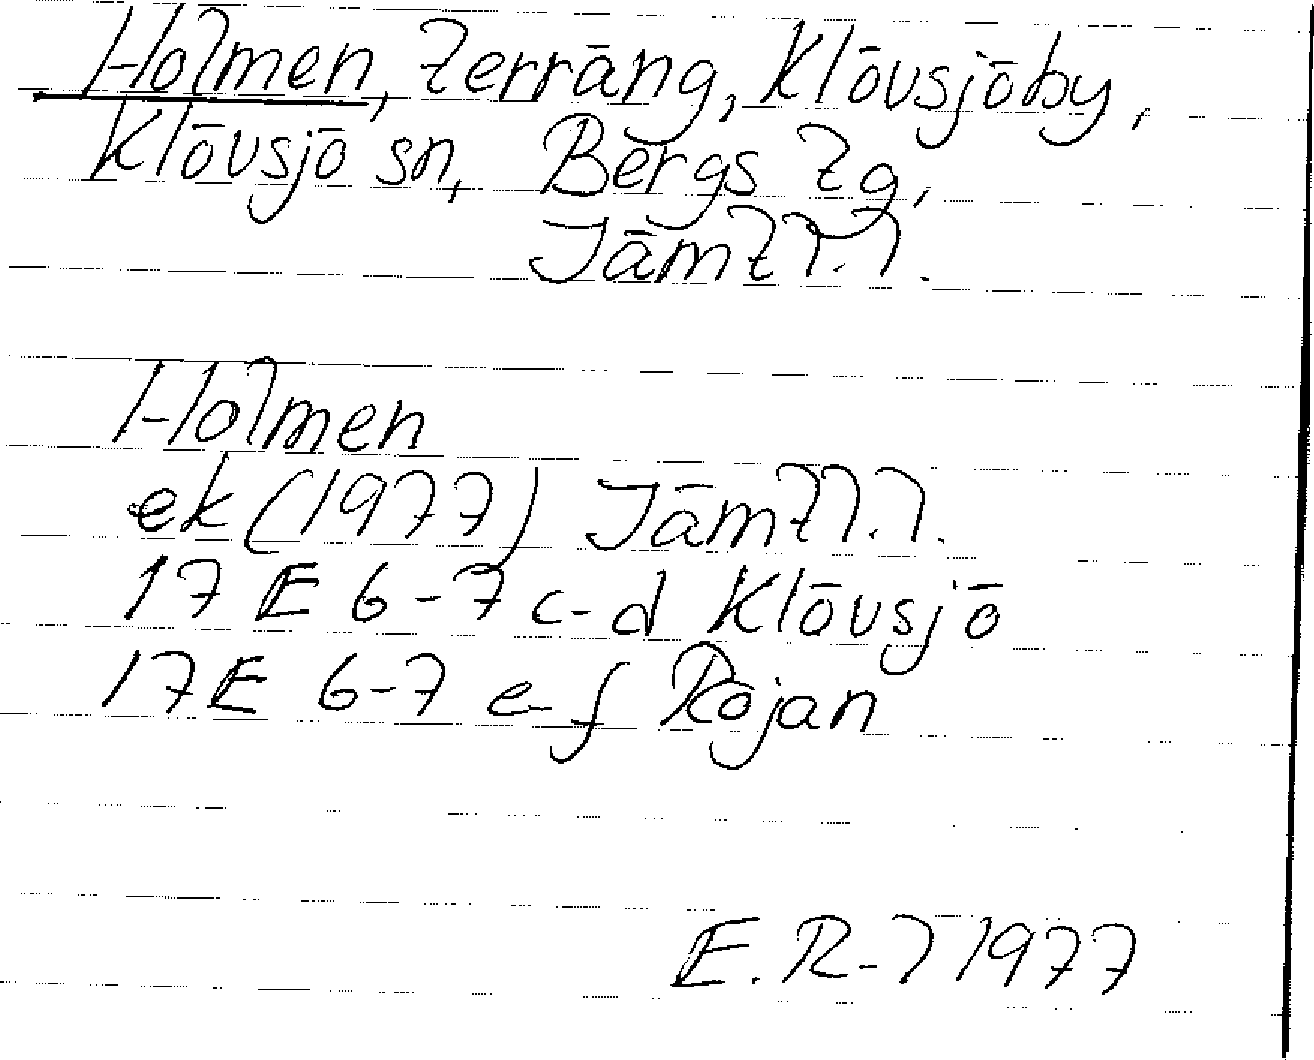 Holmen, terräng, Klövsjöby,
Klövsjö sn, Bergs tg,
Jämtl.l.
Holmen
ek (1977) Jämtl.l.
17 E 6-7 c-d Klövsjö
17E 6-7 e-f Röjan
E. R-l 1977